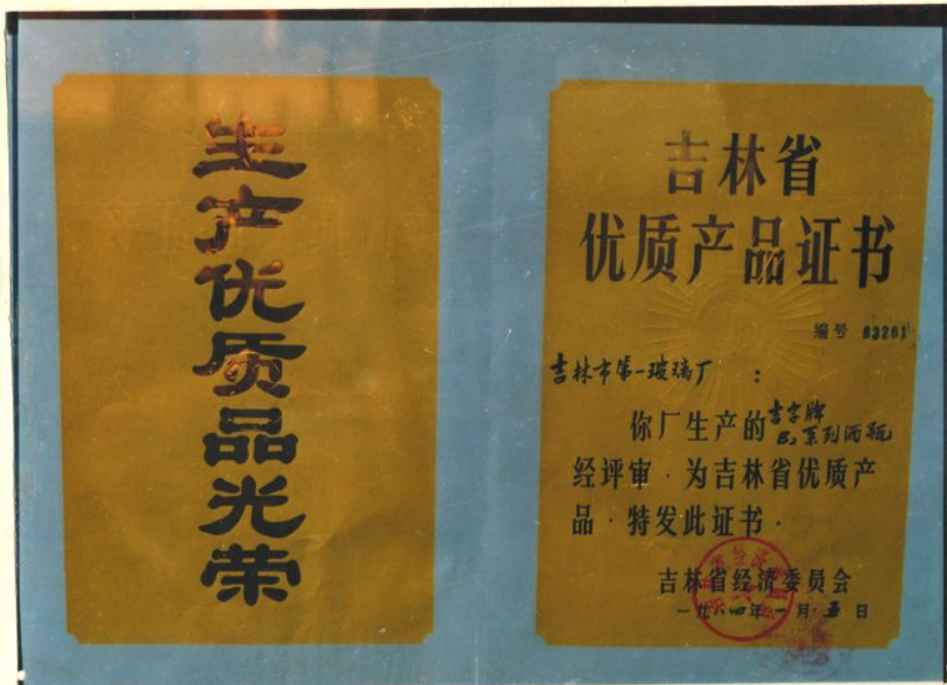 生产优质品光荣
吉林省
优质产品证书
编号 83261
吉林市第一玻璃厂 :
你厂生产的吉字牌
B₂系列酒瓶
经评审·为吉林省优质产
品·特发此证书·
吉林省经济委员会
一九八四年一月五日